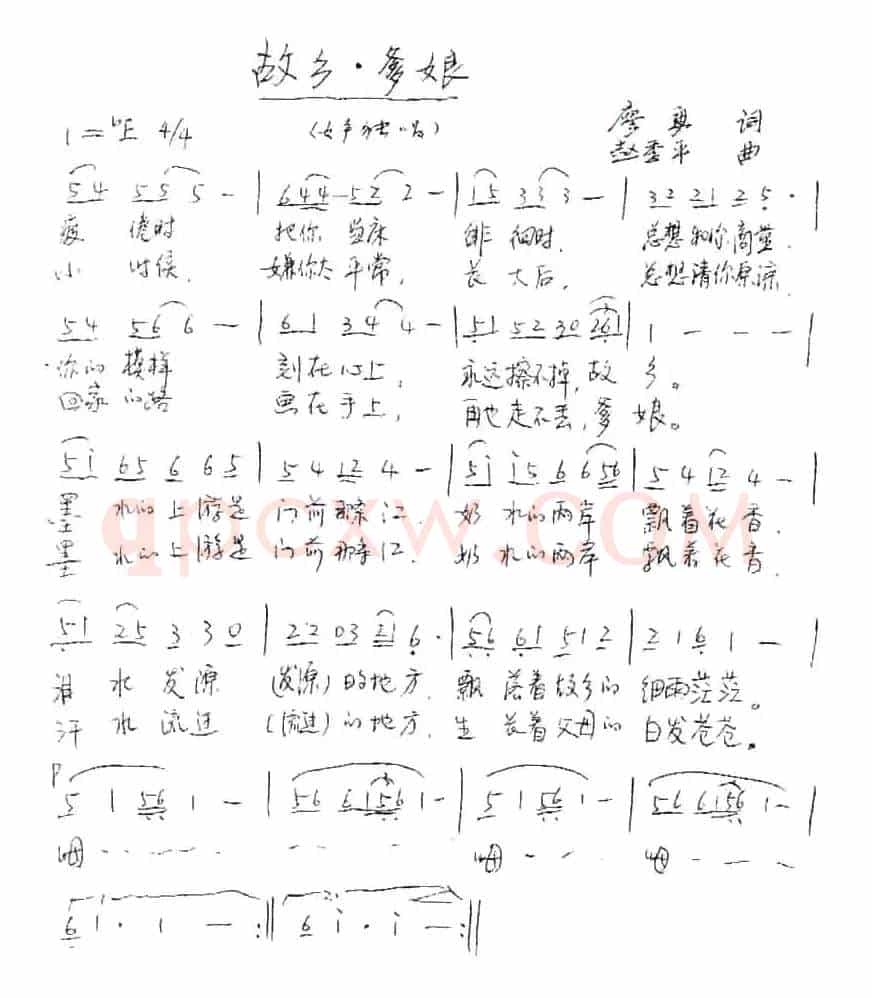 故乡·爹娘
1=♭E 4/4 (女声独唱)
廖勇 词
赵季平 曲
54 55 5 - | 644 - 52 2 - | 15 33 3 - | 32 21 2 5 · |
疲倦时 把你当床 徘徊时, 总想和你商量.
小时候, 嫌你太平常, 长大后, 总想请你原谅.
54 56 6 - | 61 34 4 - | 51 52 30 261 | 1 - - - |
你的模样 刻在心上, 永远擦不掉,故乡。
回家的路 画在手上, 再也走不丢,爹娘。
51 65 6 65 | 54 12 4 - | 51 15 6 656 | 54 12 4 - |
墨水的上游是 门前那条江. 奶水的两岸 飘着花香.
墨水的上游是 门前那条江. 奶水的两岸 飘着花香.
51 25 3 30 | 22 03 21 6 · | 56 61 51 2 | 216 1 - |
泪水发源 (发源)的地方, 飘落着故乡的 细雨茫茫。
汗水流过 (流过)的地方, 生长着父母的 白发苍苍。
P
51 56 1 - | 56 6156 1 - | 51 56 1 - | 56 6156 1 - |
呣 - - - - - - - - 呣 - - - 呣 - - -
1. 2.
6 1 · 1 - :|| 6 1 · 1 - :||
qpcxw.COM